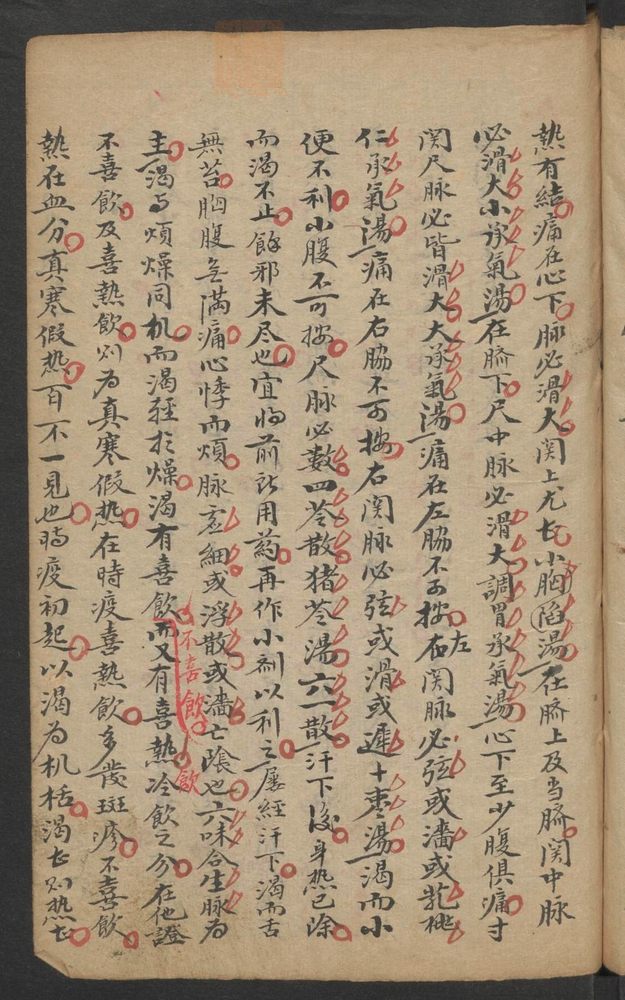 熱有結痛在心下脉必滑大関上尤甚小胸陷湯在臍上及当臍関中脉
必滑大小承氣湯在臍下尺中脉必滑大調胃承氣湯心下至少腹俱痛寸
関尺脉必皆滑大大承氣湯痛在左脇不可按左関脉必弦或濇或芤桃
仁承氣湯痛在右脇不可按右関脉必弦或滑或遲十枣湯渴而小
便不利小腹不可按尺脉必數四苓散猪苓湯六一散汗下後身热已除
而渴不止餘邪未尽也宜将前所用葯再作小剤以利之屡經汗下渴而舌
無苔胸腹無满痛心悸而煩脉虚細或浮散或濇亡陰也六味合生脉为
主渴与煩燥同机而渴轻於燥渴有喜飲不喜飲而又有喜热飲冷飲之分在他證
不喜飲及喜熱飲则为真寒假热在時疫喜熱飲多發斑疹不喜飲
熱在血分真寒假热百不一見也時疫初起以渴为机栝渴甚则热甚